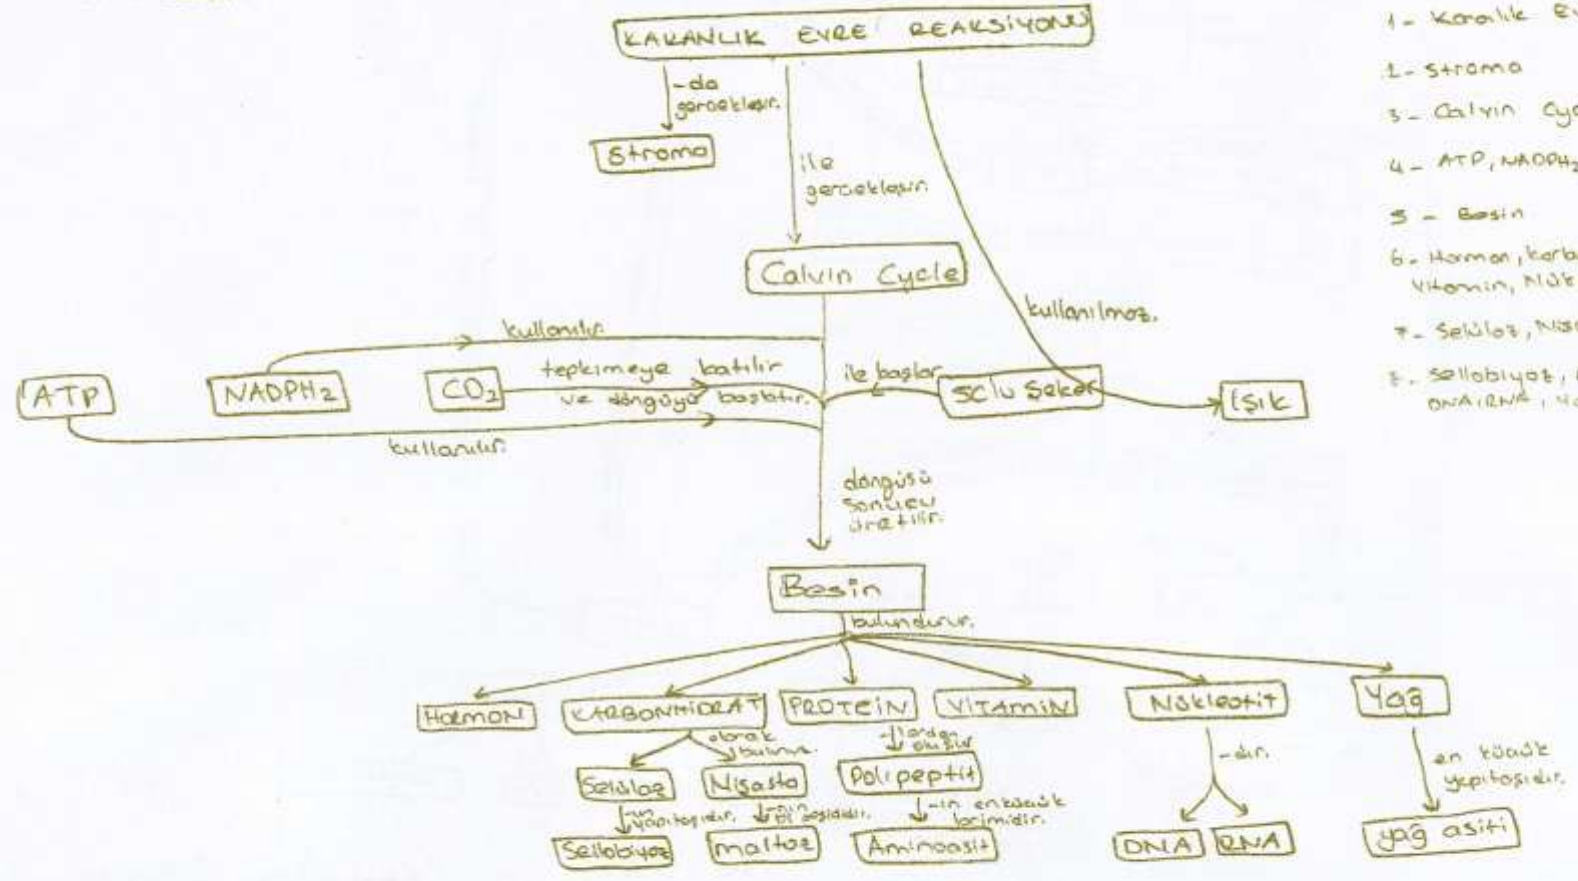 KARANLIK EVRE REAKSİYONU
-da
gerçekleşir.
Stroma
ile
gerçekleşir.
Calvin Cycle
kullanılmaz.
kullanılır.
ATP
NADPH2
CO2
tepkimeye katılır
ve döngüyü başlatır.
ile başlar
5C'lu şeker
Işık
kullanılır.
döngüsü
sonucu
üretilir.
Besin
bulundurur.
HORMON
KARBONHİDRAT
PROTEİN
VİTAMİN
Nükleotit
Yağ
olarak
bulunur.
-lardan
oluşur
-dır.
en küçük
yapıtaşıdır.
Selüloz
Nişasta
Polipeptit
-un
yapıtaşıdır.
-nın
-in en küçük
birimidir.
Sellobiyoz
maltoz
Aminoasit
DNA
RNA
yağ asiti
1- Karanlık
2- Stroma
3- Calvin
4- ATP, NADPH2
5- Besin
6- Hormon,
Vitamin,
7- Selüloz,
8- Sellobiyoz,
DNA, RNA,